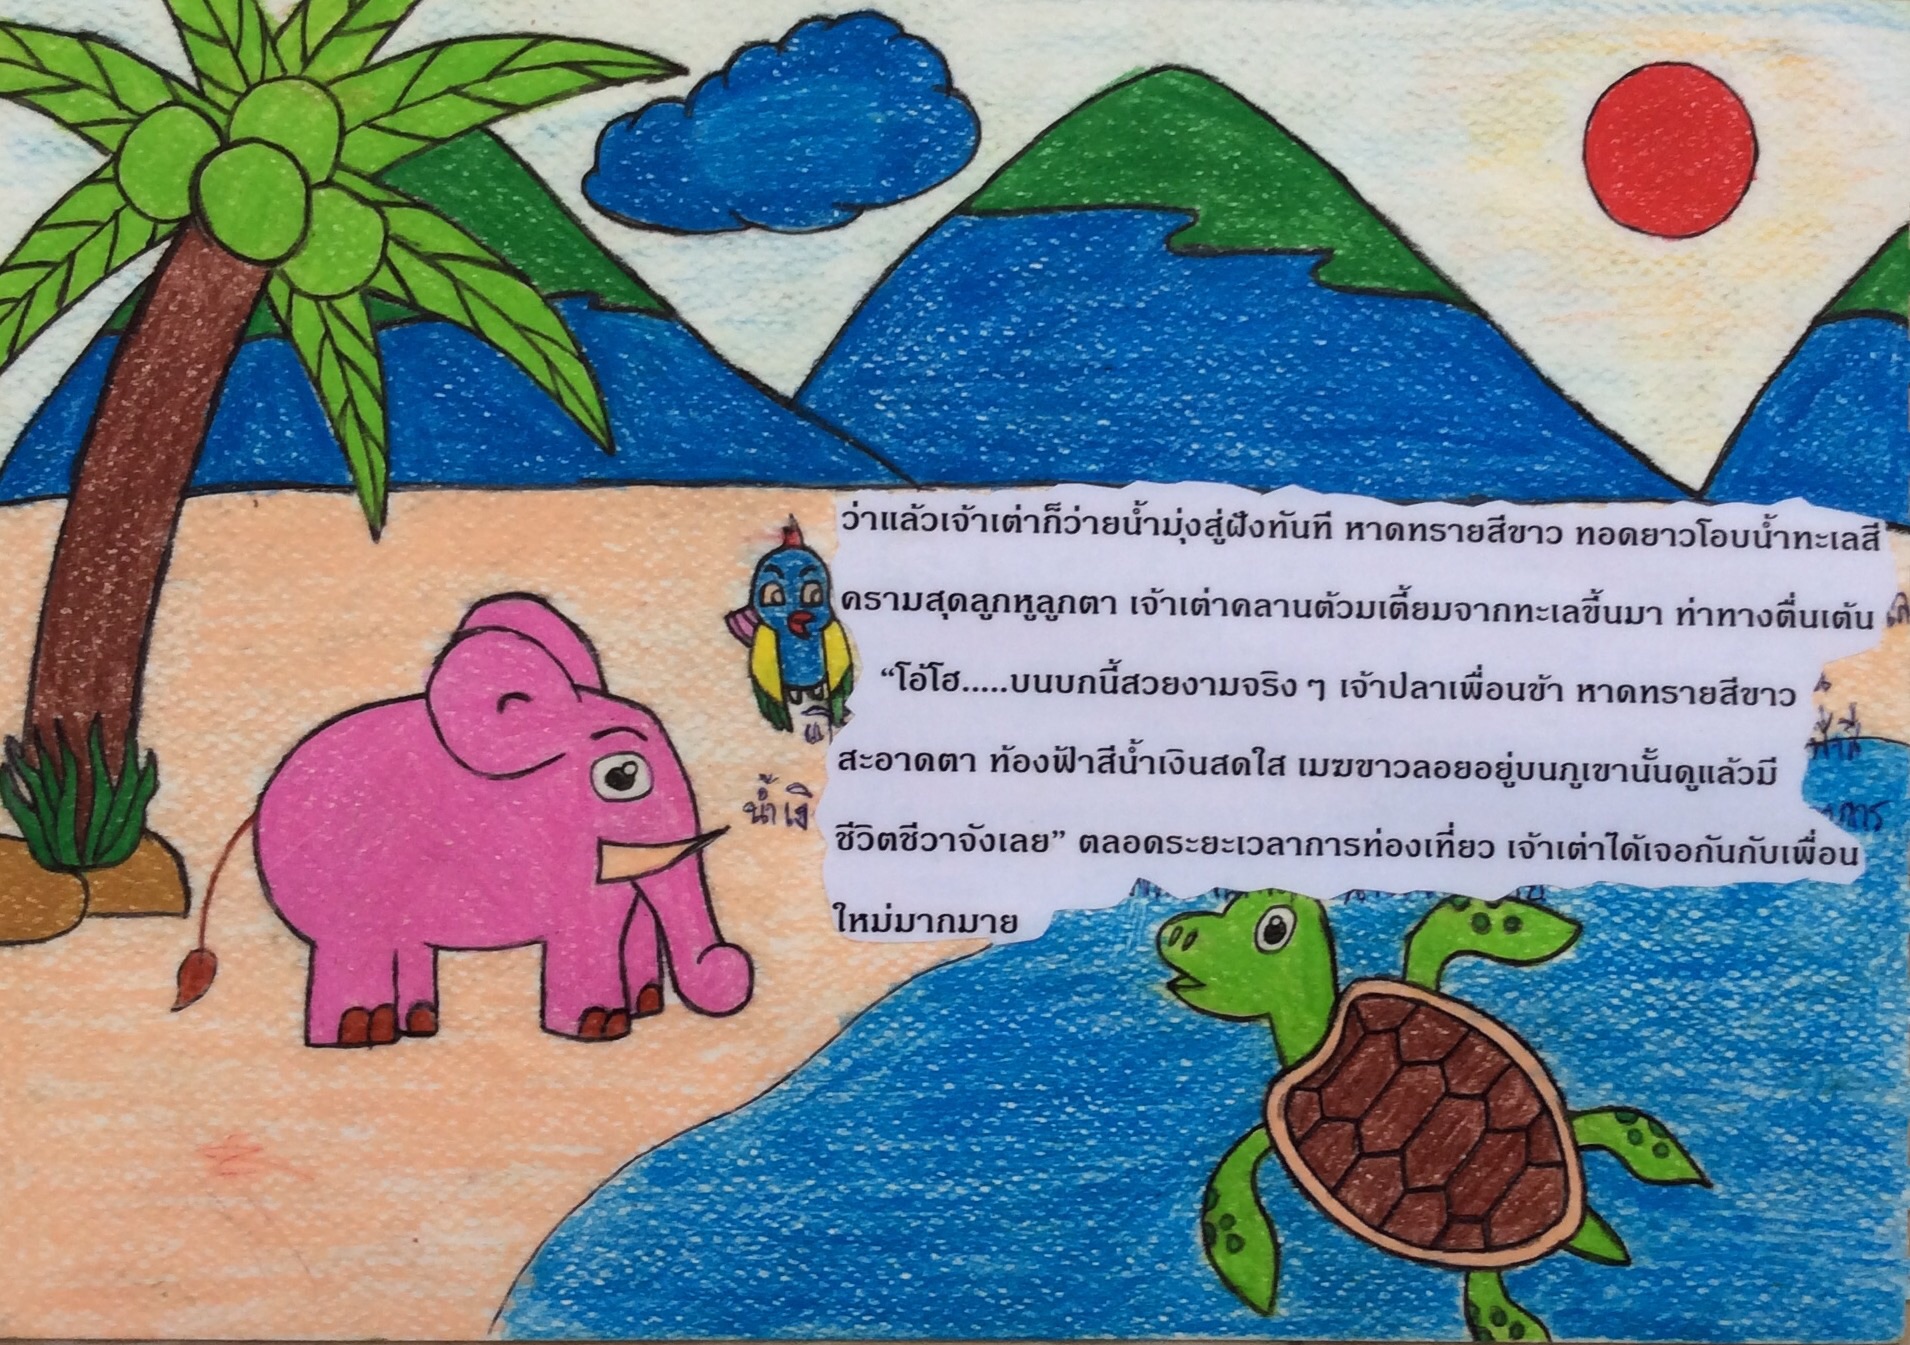 ว่าแล้วเจ้าเต่าก็ว่ายน้ำมุ่งสู่ฝั่งทันที หาดทรายสีขาว ทอดยาวโอบน้ำทะเลสี
ครามสุดลูกหูลูกตา เจ้าเต่าคลานต้วมเตี้ยมจากทะเลขึ้นมา ท่าทางตื่นเต้น
“โอ้โฮ.....บนบกนี้สวยงามจริง ๆ เจ้าปลาเพื่อนข้า หาดทรายสีขาว
สะอาดตา ท้องฟ้าสีน้ำเงินสดใส เมฆขาวลอยอยู่บนภูเขานั้นดูแล้วมี
น้ำเงิ
ชีวิตชีวาจังเลย” ตลอดระยะเวลาการท่องเที่ยว เจ้าเต่าได้เจอกันกับเพื่อน
ใหม่มากมาย